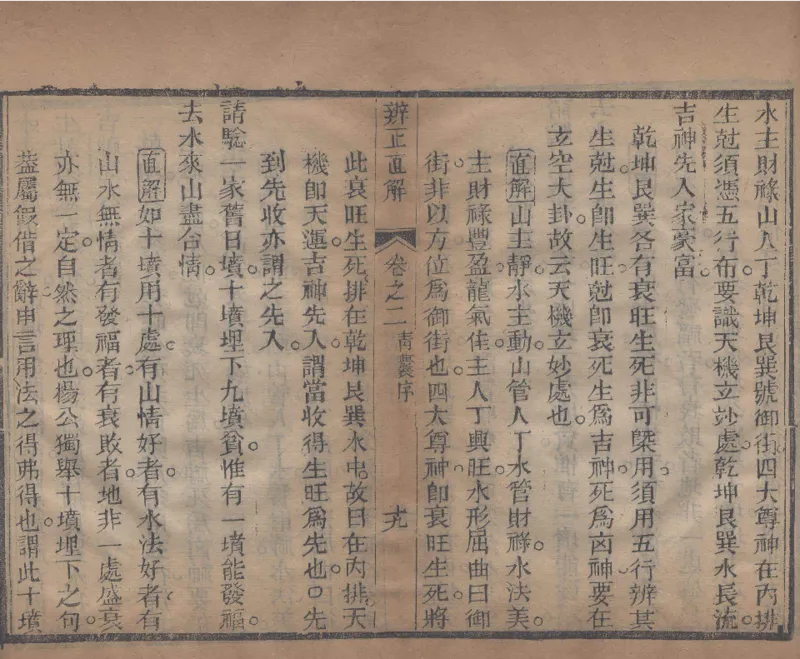 水主財祿山人丁乾坤艮巽號御街四大尊神在內排
生尅須憑五行布要識天機立妙處乾坤艮巽水長流
吉神先入家豪富
乾坤艮巽各有衰旺生死非可槩用須用五行辨其
生尅生卽生旺尅卽衰死生爲吉神死爲凶神要在
立空大卦故云天機立妙處也
直解山主靜水主動山管人丁水管財祿水法美
主財祿豐盈龍氣佳主人丁興旺水形屈曲曰御
街非以方位爲御街也四大尊神卽衰旺生死將
辨正直解
卷之二
青囊序
十九
此衰旺生死排在乾坤艮巽水中故曰在內排天
機卽天運吉神先入謂當收得生旺爲先也○先
到先收亦謂之先入
請騐一家舊日墳十墳埋下九墳貧惟有一墳能發福
去水來山盡合情
直解如十墳用十處有山情好者有水法好者有
山水無情者有發福者有衰敗者地非一處盛衰
亦無一定自然之理也楊公獨舉十墳埋下之句
葢屬假借之辭申言用法之得弗得也謂此十墳